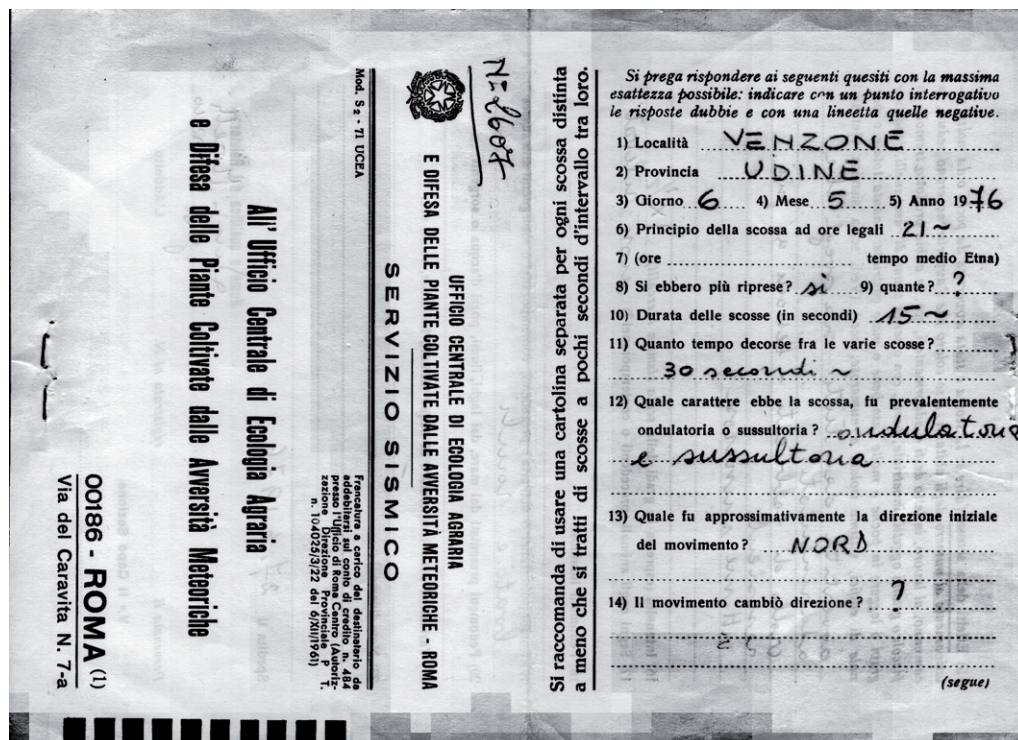 Si prega rispondere ai seguenti quesiti con la massima
esattezza possibile: indicare con un punto interrogativo
le risposte dubbie e con una lineetta quelle negative.
1) Località VENZONE
2) Provincia UDINE
3) Giorno 6 4) Mese 5 5) Anno 1976
6) Principio della scossa ad ore legali 21 ~
7) (ore tempo medio Etna)
8) Si ebbero più riprese? si 9) quante? ?
10) Durata delle scosse (in secondi) 15 ~
11) Quanto tempo decorse fra le varie scosse?
30 secondi ~
12) Quale carattere ebbe la scossa, fu prevalentemente
ondulatoria o sussultoria? ondulatoria
e sussultoria
13) Quale fu approssimativamente la direzione iniziale
del movimento? NORD
14) Il movimento cambiò direzione? ?
(segue)
Si raccomanda di usare una cartolina separata per ogni scossa distinta
a meno che si tratti di scosse a pochi secondi d'intervallo tra loro.
N= 2607
UFFICIO CENTRALE DI ECOLOGIA AGRARIA
E DIFESA DELLE PIANTE COLTIVATE DALLE AVVERSITÀ METEORICHE - ROMA
SERVIZIO SISMICO
Mod. S2 - 71 UCEA
Francatura a carico del destinatario da
addebitarsi sul conto di credito n. 484
presso l'Ufficio di Roma Centro (Autoriz-
zazione Direzione Provinciale P. T.
n. 104025/3/22 del 6/XII/1961)
All' Ufficio Centrale di Ecologia Agraria
e Difesa delle Piante Coltivate dalle Avversità Meteoriche
00186 - ROMA (1)
Via del Caravita N. 7-a